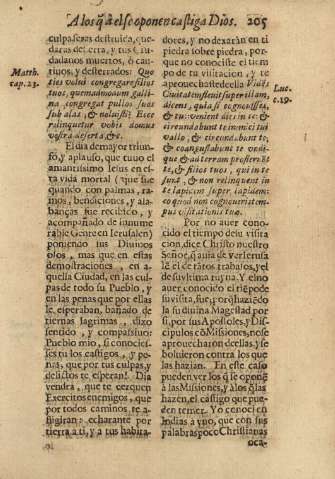 A los q̃ a el se oponen castiga Dios. 205
culpas eras destruida, que-
daras desierta, y tus Ciu-
dadanos muertos, ò cau-
tiuos, y desterrados: Quo
Matth.
cap. 23.
ties volui congregare filios
tuos, quemadmodum galli
na congregat pullos suos
sub alas, & noluisti? Ecce
relinquetur vobis domus
vestra deserta, &c.
El dia de mayor triun-
fo, y aplauso, que tuuo el
amantissimo Iesus en es-
ta vida mortal (que fue
quando con palmas, ra-
mos, bendiciones, y ala-
banças fue recibido, y
acompañado de innume
rable Gente en Ierusalen)
poniendo sus Diuinos
ojos, mas que en estas
demostraciones, en a-
quella Ciudad, en las cul-
pas de todo su Pueblo, y
en las penas que por ellas
le esperaban, bañado de
tiernas lagrimas, dixo
sentido, y compassiuo:
Pueblo mio, si conocies-
ses tu los castigos, y pe-
nas, que por tus culpas, y
delictos te esperan! Dia
vendra, que te cerquen
Exercitos enemigos, que
por todos caminos te a-
fligiran; echarante por
tierra a ti, y a tus habita-
dores, y no dexaràn en ti
piedra sobre piedra, por-
que no conociste el tiem
po de tu visitacion, y te
aprouechaste della: Vidẽs
Luc.
c. 19.
Ciuitatem fleuit super illam,
dicens, quia si cognouisses,
& tu: venient dies in te: &
circundabunt te inimici tui
vallo, & circundabunt te,
& coangustabunt te vndi-
que & ad terram prosternẽt
te, & filios tuos, qui in te
sunt, & non relinquent in
te lapidem super lapidem:
eo quod non cognoueris tem-
pus visitationis tuæ.
Por no auer conoci-
do el tiempo de su visita
cion, dice Christo nuestro
Señor, q̃ auia de ver Ierusa
lẽ el de tãtos trabajos, y el
de su vltima ruyna. Y el no
auer conocido el tiẽpo de
su visita, fue; porq̃ haziẽdo
la su diuina Magestad por
si, por sus Apostoles, y Dis-
cipulos cõ Missiones, no se
aprouecharon de ellas, y se
boluieron contra los que
las hazian. En este caso
pueden ver los q̃ se oponẽ
a las Missiones, y a los q̃ las
hazen, el castigo que pue-
den temer. Yo conoci en
Indias a vno, que con sus
palabras poco Christianas
oca-